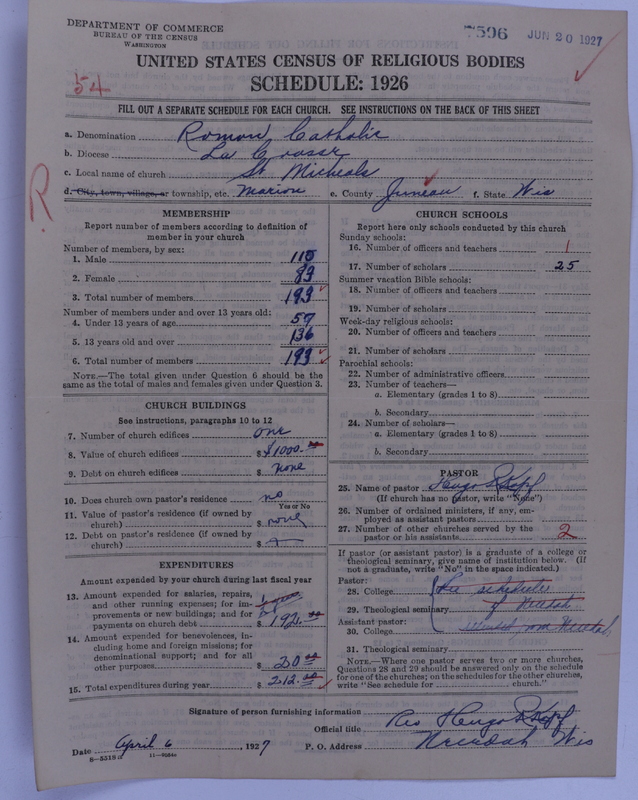 DEPARTMENT OF COMMERCE
BUREAU OF THE CENSUS
WASHINGTON
7596 JUN 20 1927
UNITED STATES CENSUS OF RELIGIOUS BODIES
SCHEDULE: 1926
54
FILL OUT A SEPARATE SCHEDULE FOR EACH CHURCH. SEE INSTRUCTIONS ON THE BACK OF THIS SHEET
a. Denomination Roman Catholic
b. Diocese La Crosse
c. Local name of church St Micheals
d. City, town, village, or township, etc. Marion e. County Juneau f. State Wis
R
MEMBERSHIP
Report number of members according to definition of
member in your church
Number of members, by sex:
1. Male 110
2. Female 83
3. Total number of members 193
Number of members under and over 13 years old:
4. Under 13 years of age 57
5. 13 years old and over 136
6. Total number of members 193
NOTE.—The total given under Question 6 should be the
same as the total of males and females given under Question 3.
CHURCH BUILDINGS
See instructions, paragraphs 10 to 12
7. Number of church edifices one
8. Value of church edifices $ $1000.00
9. Debt on church edifices $ none
10. Does church own pastor's residence no
Yes or No
11. Value of pastor's residence (if owned by
church) $ none
12. Debt on pastor's residence (if owned by
church) $
EXPENDITURES
Amount expended by your church during last fiscal year
13. Amount expended for salaries, repairs,
and other running expenses; for im-
provements or new buildings; and for
payments on church debt $ 192.00
14. Amount expended for benevolences, in-
cluding home and foreign missions; for
denominational support; and for all
other purposes $ 20.00
15. Total expenditures during year $ 212.00
CHURCH SCHOOLS
Report here only schools conducted by this church
Sunday schools:
16. Number of officers and teachers 1
17. Number of scholars 25
Summer vacation Bible schools:
18. Number of officers and teachers
19. Number of scholars
Week-day religious schools:
20. Number of officers and teachers
21. Number of scholars
Parochial schools:
22. Number of administrative officers
23. Number of teachers—
a. Elementary (grades 1 to 8)
b. Secondary
24. Number of scholars—
a. Elementary (grades 1 to 8)
b. Secondary
PASTOR
25. Name of pastor Hugo
(If church has no pastor, write "None")
26. Number of ordained ministers, if any, em-
ployed as assistant pastors
27. Number of other churches served by the
pastor or his assistants 2
If pastor (or assistant pastor) is a graduate of a college or
theological seminary, give name of institution below. (If
not a graduate, write "No" in the space indicated.)
Pastor:
28. College See schedule
29. Theological seminary of Necedah
Assistant pastor:
30. College from Necedah
31. Theological seminary
NOTE.—Where one pastor serves two or more churches,
Questions 28 and 29 should be answered only on the schedule
for one of the churches; on the schedules for the other churches,
write "See schedule for church."
Signature of person furnishing information Rev Hugo
Official title
Date April 6, 1927 P. O. Address Necedah Wis